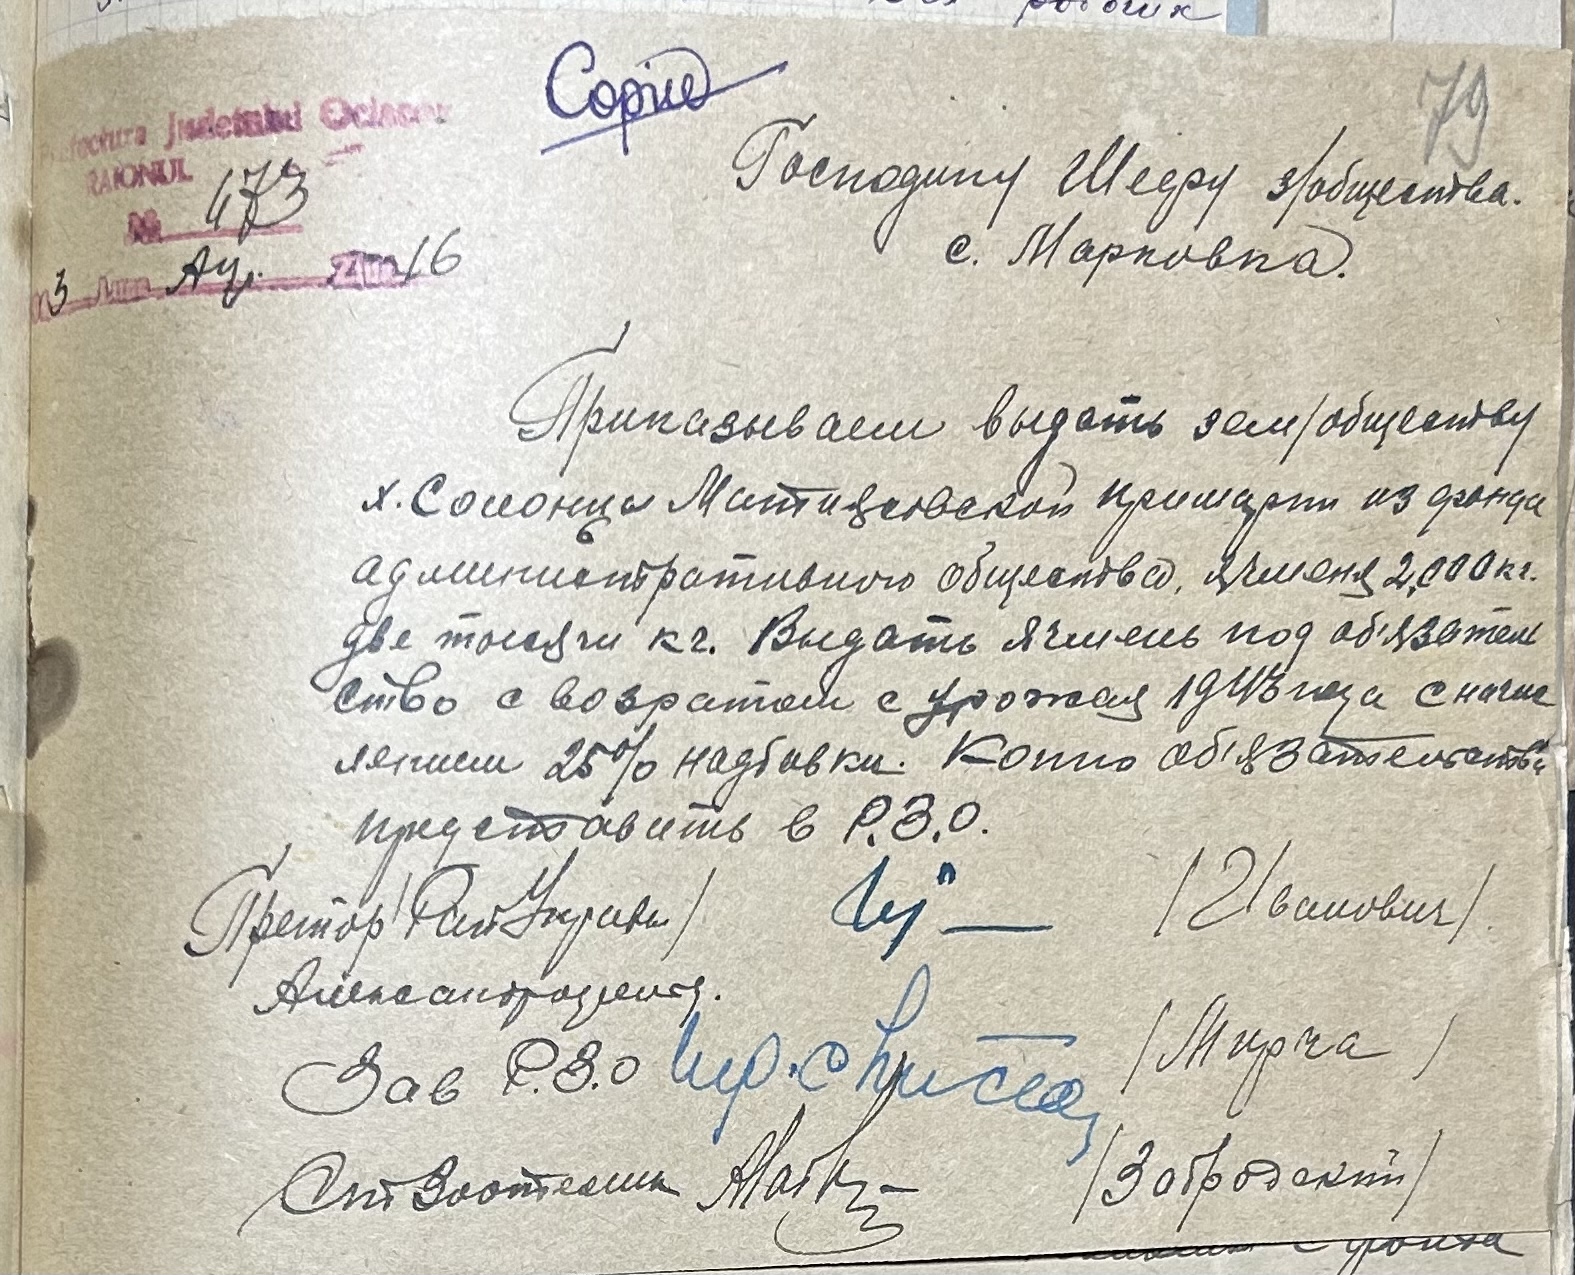 Copie
79
Prefectura Județului Oceacov
RAIONUL
№ 473
3 Ау. 16
Господину Шефу з/общества.
с. Марковка.
Приказываем выдать зем/обществу
х. Солонцы Матиясовской примарии из фонда
административного общества, ячменя 2,000 кг.
две тысячи кг. Выдать ячмень под обязатель
ство с возвратом с урожая 1943 года с начис
лением 25% надбавки. Копию об'язательства
представить в Р.З.О.
Претор /Рай Управы/ /Иванович/.
Александродента.
Зав Р.З.О /Мирча/
Ст Зоотехник /Забродский/
с фонда